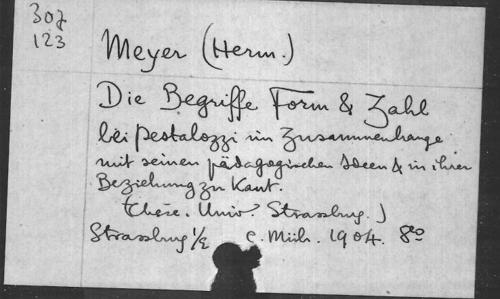 307
123
Meyer (Herm.)
Die Begriffe Form & Zahl
bei Pestalozzi im Zusammenhange
mit seinen pädagogischen Ideen & in ihrer
Beziehung zu Kant.
Thèse. Univ. Strassburg.)
Strassburg i/E C. Müh. 1904. 8º